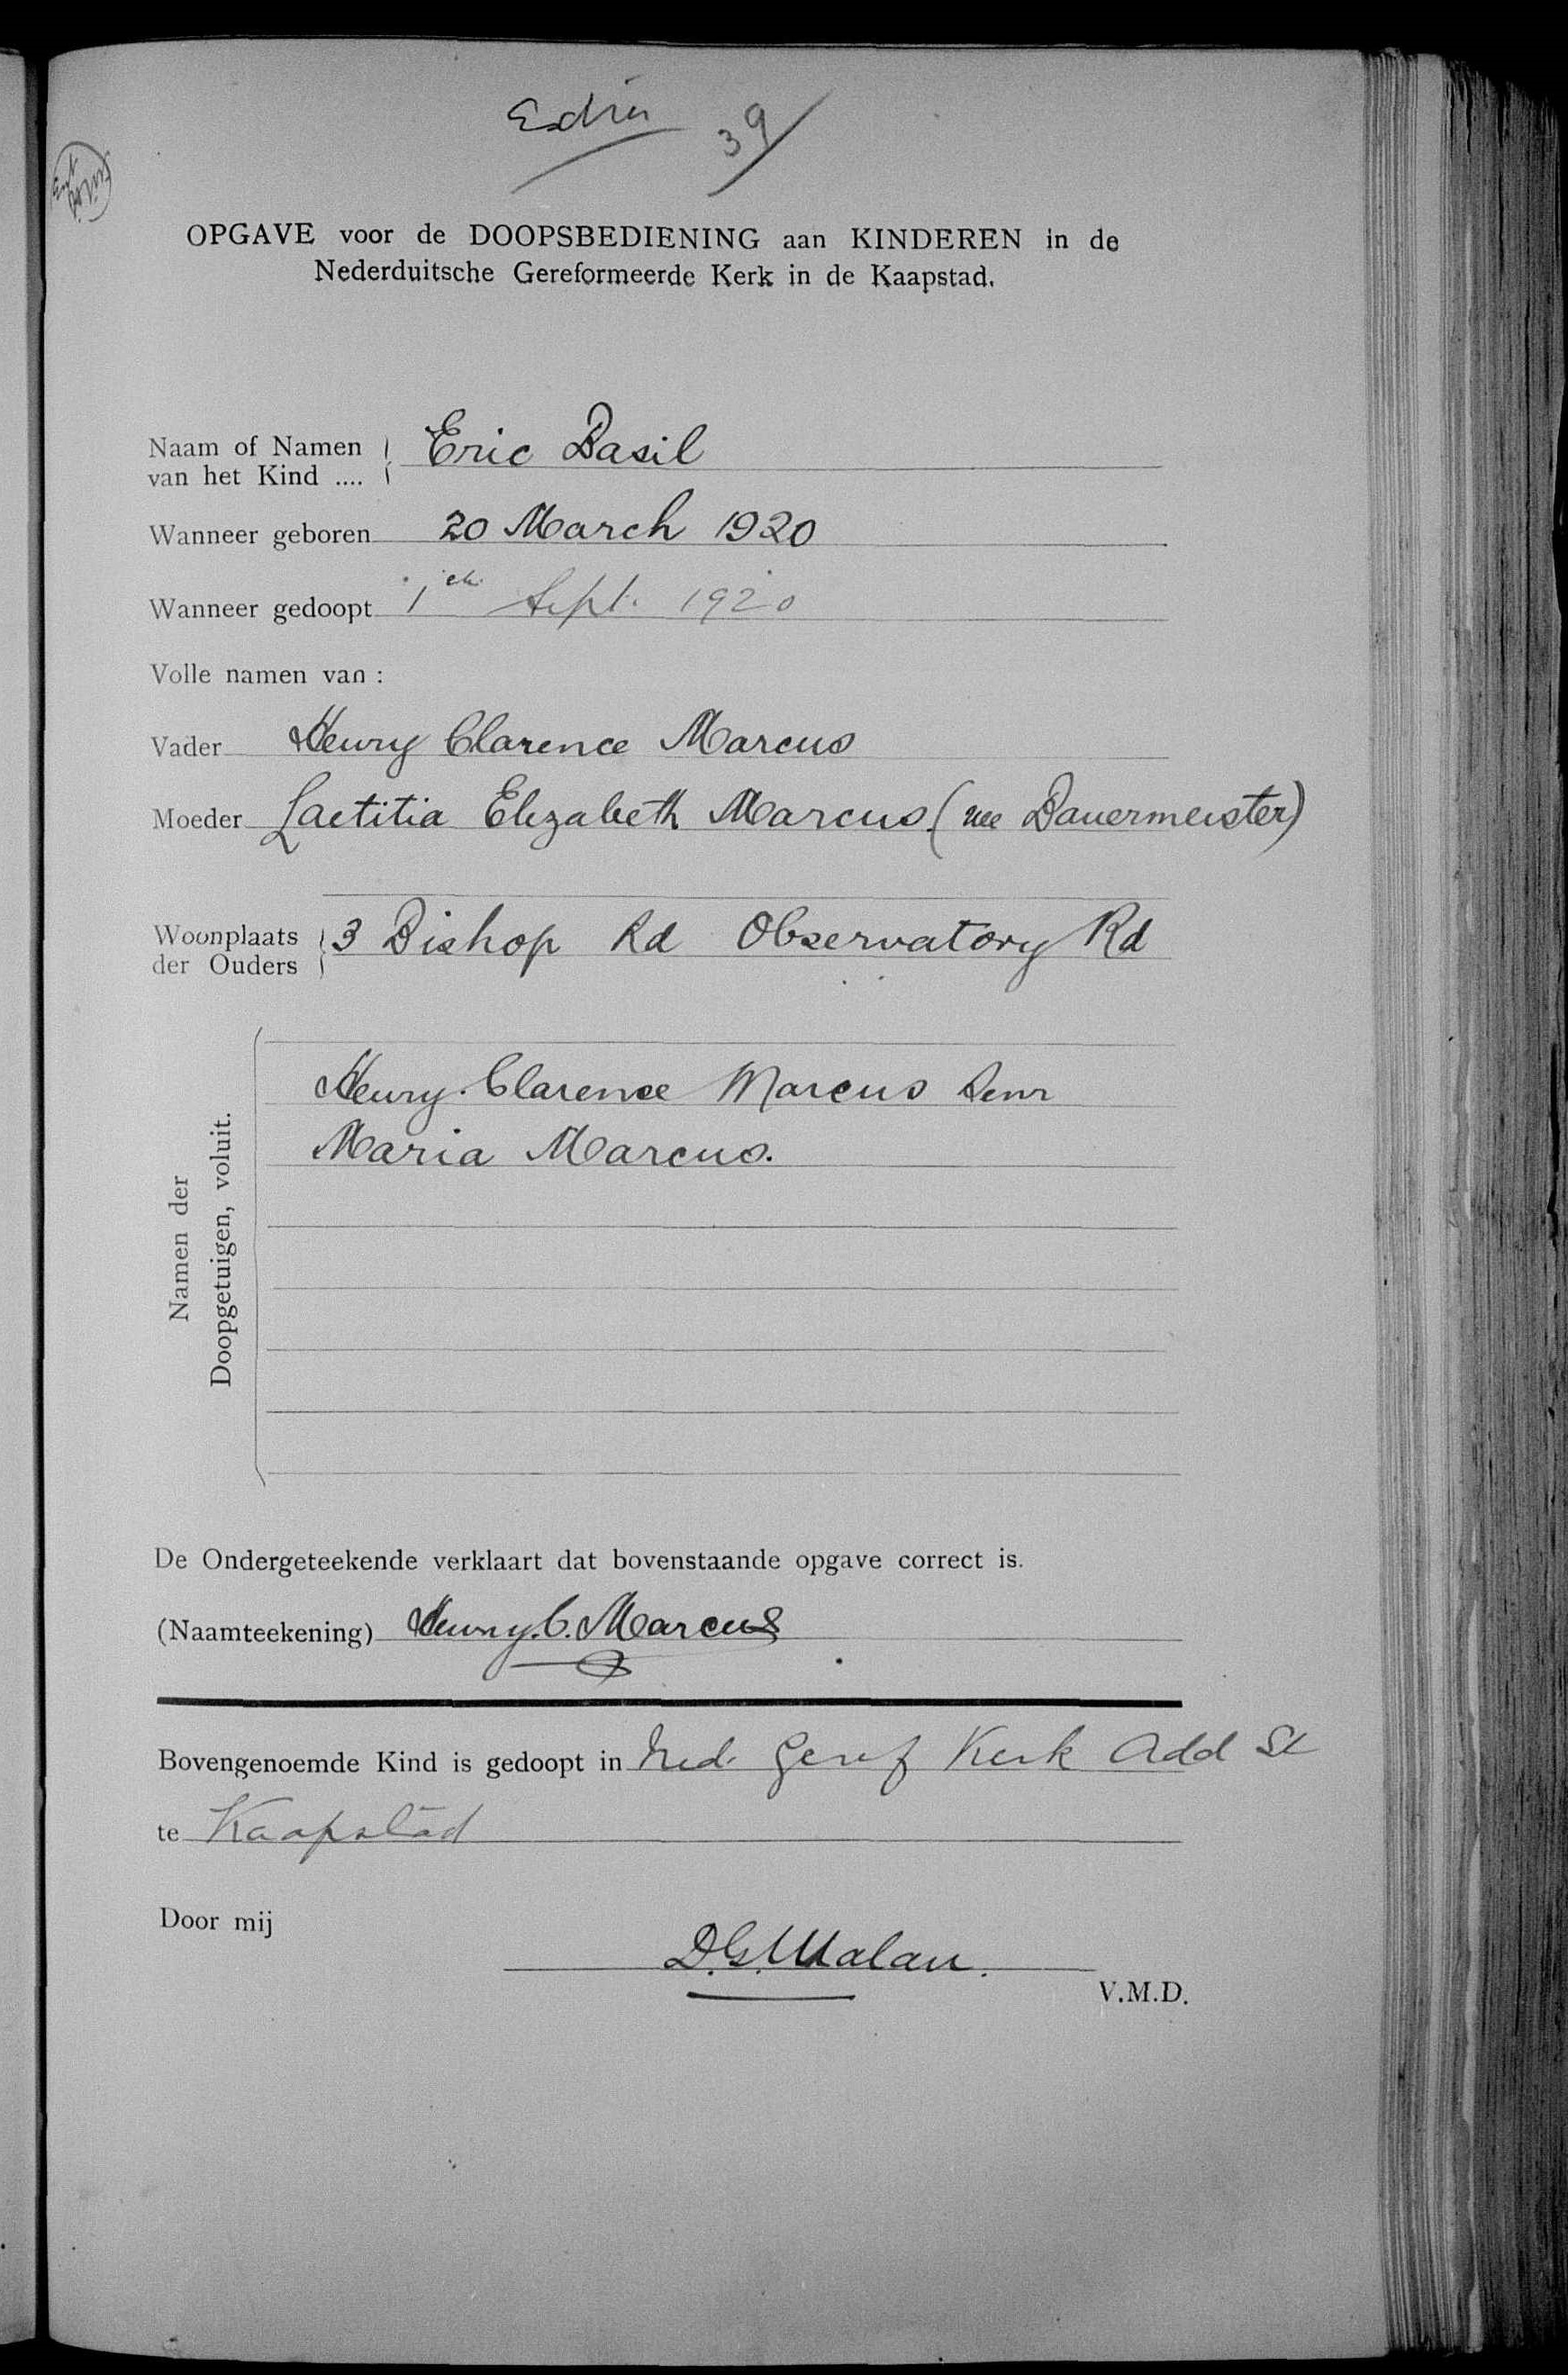 39
OPGAVE voor de DOOPSBEDIENING aan KINDEREN in de
Nederduitsche Gereformeerde Kerk in de Kaapstad.
Naam of Namen
van het Kind .... Eric Basil
Wanneer geboren 20 March 1920
Wanneer gedoopt 1 Sept. 1920
Volle namen van :
Vader Henry Clarence Marcus
Moeder Laetitia Elizabeth Marcus (nee Bauermeister)
Woonplaats
der Ouders 3 Bishop Rd Observatory Rd
Namen der
Doopgetuigen, voluit.
Henry Clarence Marcus Senr
Maria Marcus.
De Ondergeteekende verklaart dat bovenstaande opgave correct is.
(Naamteekening) Henry. C. Marcus
Bovengenoemde Kind is gedoopt in Ned. Geref Kerk Add St
te Kaapstad
Door mij
D.G. Malan.
V.M.D.